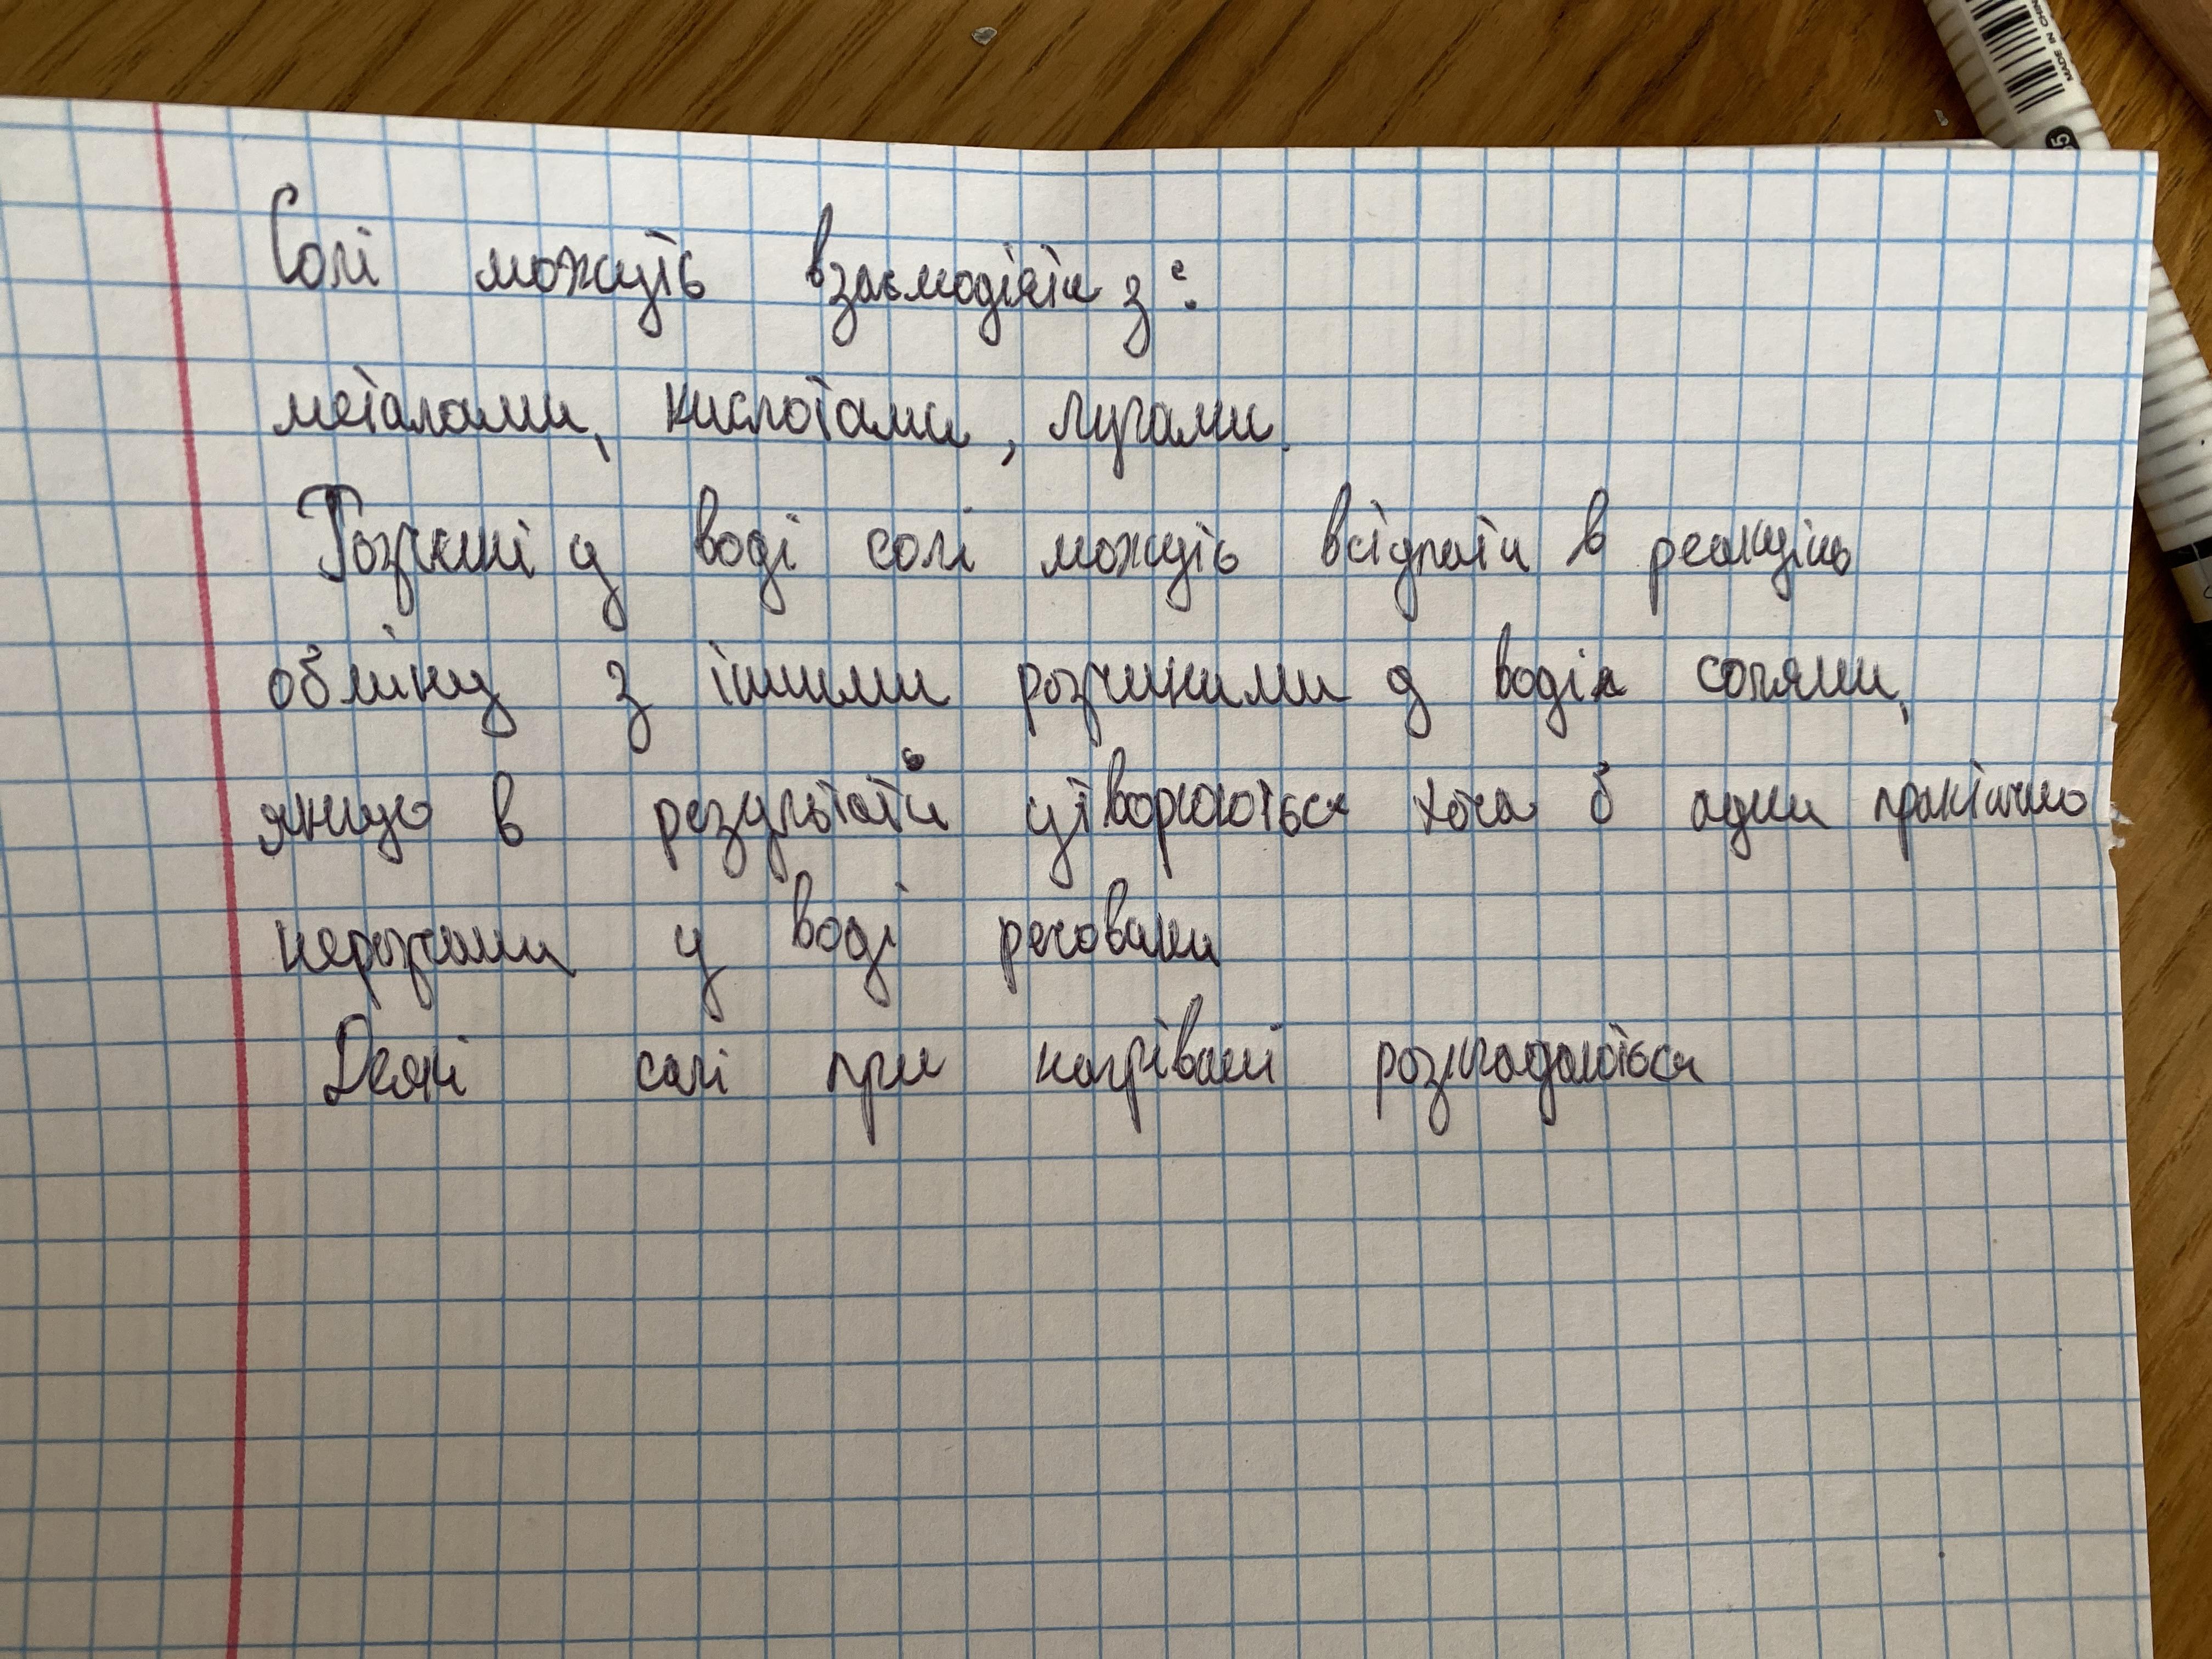 Солі можуть взаємодіяти з:
металами, кислотами, лугами.
Розчині у воді солі можуть вступати в реакцію
обміну з іншими розчиними у воді солями,
якщо в результаті утворюються хоча б одни практично
нерозчини у воді речовини
Деякі солі при нагрівані розкладаються
MADE IN CHINA